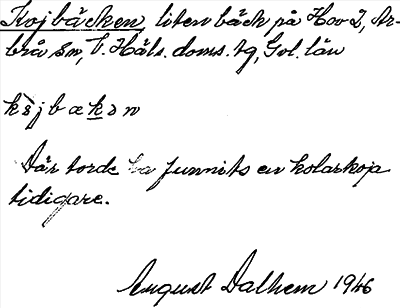 Kojbäcken, liten bäck på Hov 2, Ar-
brå sn, V. Häls. doms. tg, Gvl. län
kòjbækən
Där torde ha funnits en kolarkoja
tidigare.
August Dalhem 1946